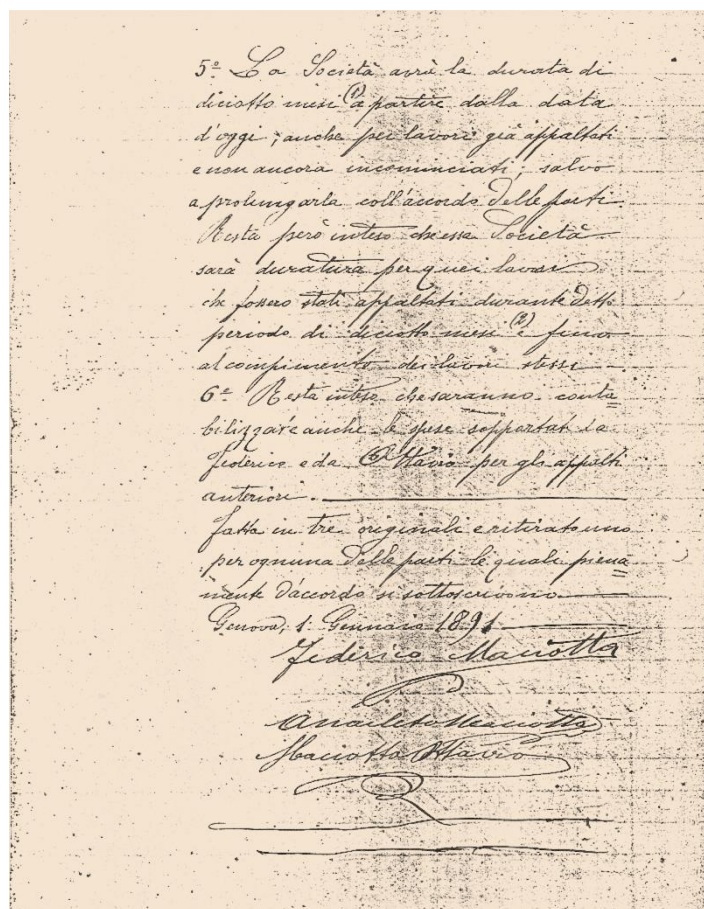 5º La Società avrà la durata di
diciotto mesi (1) a partire dalla data
d'oggi; anche per lavori già appaltati
e non ancora incominciati; salvo
a prolungarla coll'accordo delle parti
Resta però inteso che essa Società
sarà duratura per quei lavori
che fossero stati appaltati durante detto
periodo di diciotto mesi (2) e fino
al compimento dei lavori stessi
6º Resta inteso che saranno conta=
bilizzare anche le spese sopportat da
Federico e da Ottavio per gli appalti
anteriori.
fatta in tre originali e ritirato uno
per ognuna delle parti le quali piena=
mente d'accordo si sottoscrivono
Genova, 1 Gennaio 1891
Federico Maciotta
Anacleto Maciotta
Maciotta Ottavio